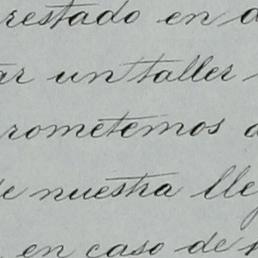 restado en d
ar un taller
rometemos a
de nuestra lle
en caso de